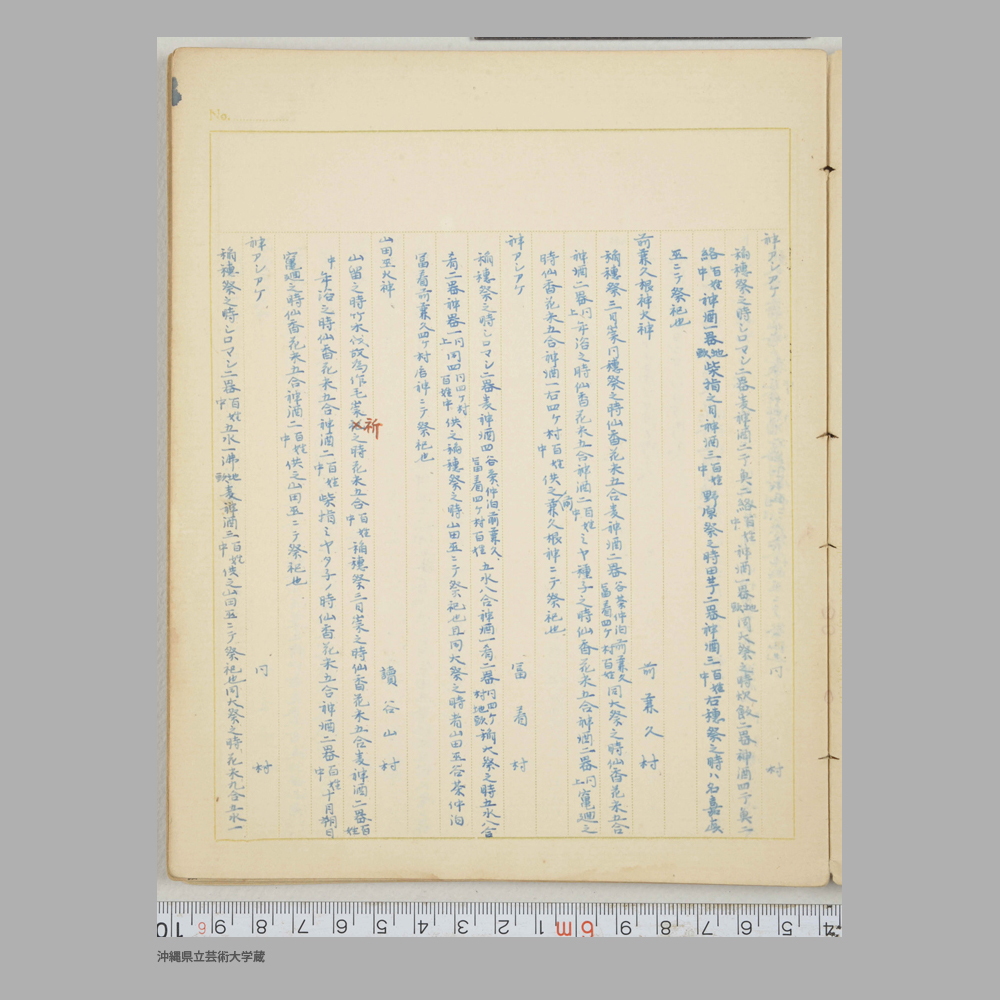 No.
神アシアゲ 同 村
稲穂祭之時シロマシ二器麦神酒二ツ奥二絡百姓中神酒一器地頭同大祭之時炊飯二器神酒四ツ奥二
絡百姓中神酒一器地頭柴指之月神酒三百姓中野原祭之時田芋二器神酒三百姓中右穂祭之時ハ名嘉真
巫ニテ祭祀也
前兼久根神火神 前兼久村
稲穂祭三日崇同穂祭之時仙香花米五合麦神酒二器谷茶仲泊前兼久冨着四ケ村百姓同大祭之時仙香花米五合
神酒二器同上年浴之時仙香花米五合神酒二百姓中ミヤ種子之時仙香花米五合神酒二器同上竈廻之
時仙香花米五合神酒一右四ケ村百姓中供之兼久根神ニテ祭祀也
神アシアゲ 冨着村
稲穂祭之時シロマシ二器麦神酒四谷茶仲泊前兼久冨着四ケ村百姓五水八合神酒一肴二器同四ケ村地頭稲大祭之時五水八合
肴二器神器一同上同四同四ケ村百姓中供之稲穂祭之時山田巫ニテ祭祀也且同大祭之時者山田巫谷茶仲泊
冨着前兼久四ケ村居神ニテ祭祀也
山田巫火神 讀谷山村
山留之時竹木伐故為作毛崇祈之時花米五合百姓中稲穂祭三日崇之時仙香花米五合麦神酒二器百姓
中年浴之時仙香花米五合神酒二百姓中柴指ミヤタ子ノ時仙香花米五合神酒二器百姓中十月朔日
竈廻之時仙香花米五合神酒二百姓中供之山田巫ニテ祭祀也
神アシアゲ 同 村
稲穂祭之時シロマシ二器百姓中五水一沸地頭麦神酒三百姓中供之山田巫ニテ祭祀也同大祭之時花米九合五水一
10 9 8 7 6 5 4 3 2 1 6m 9 8 7 6 5 4
沖縄県立芸術大学蔵